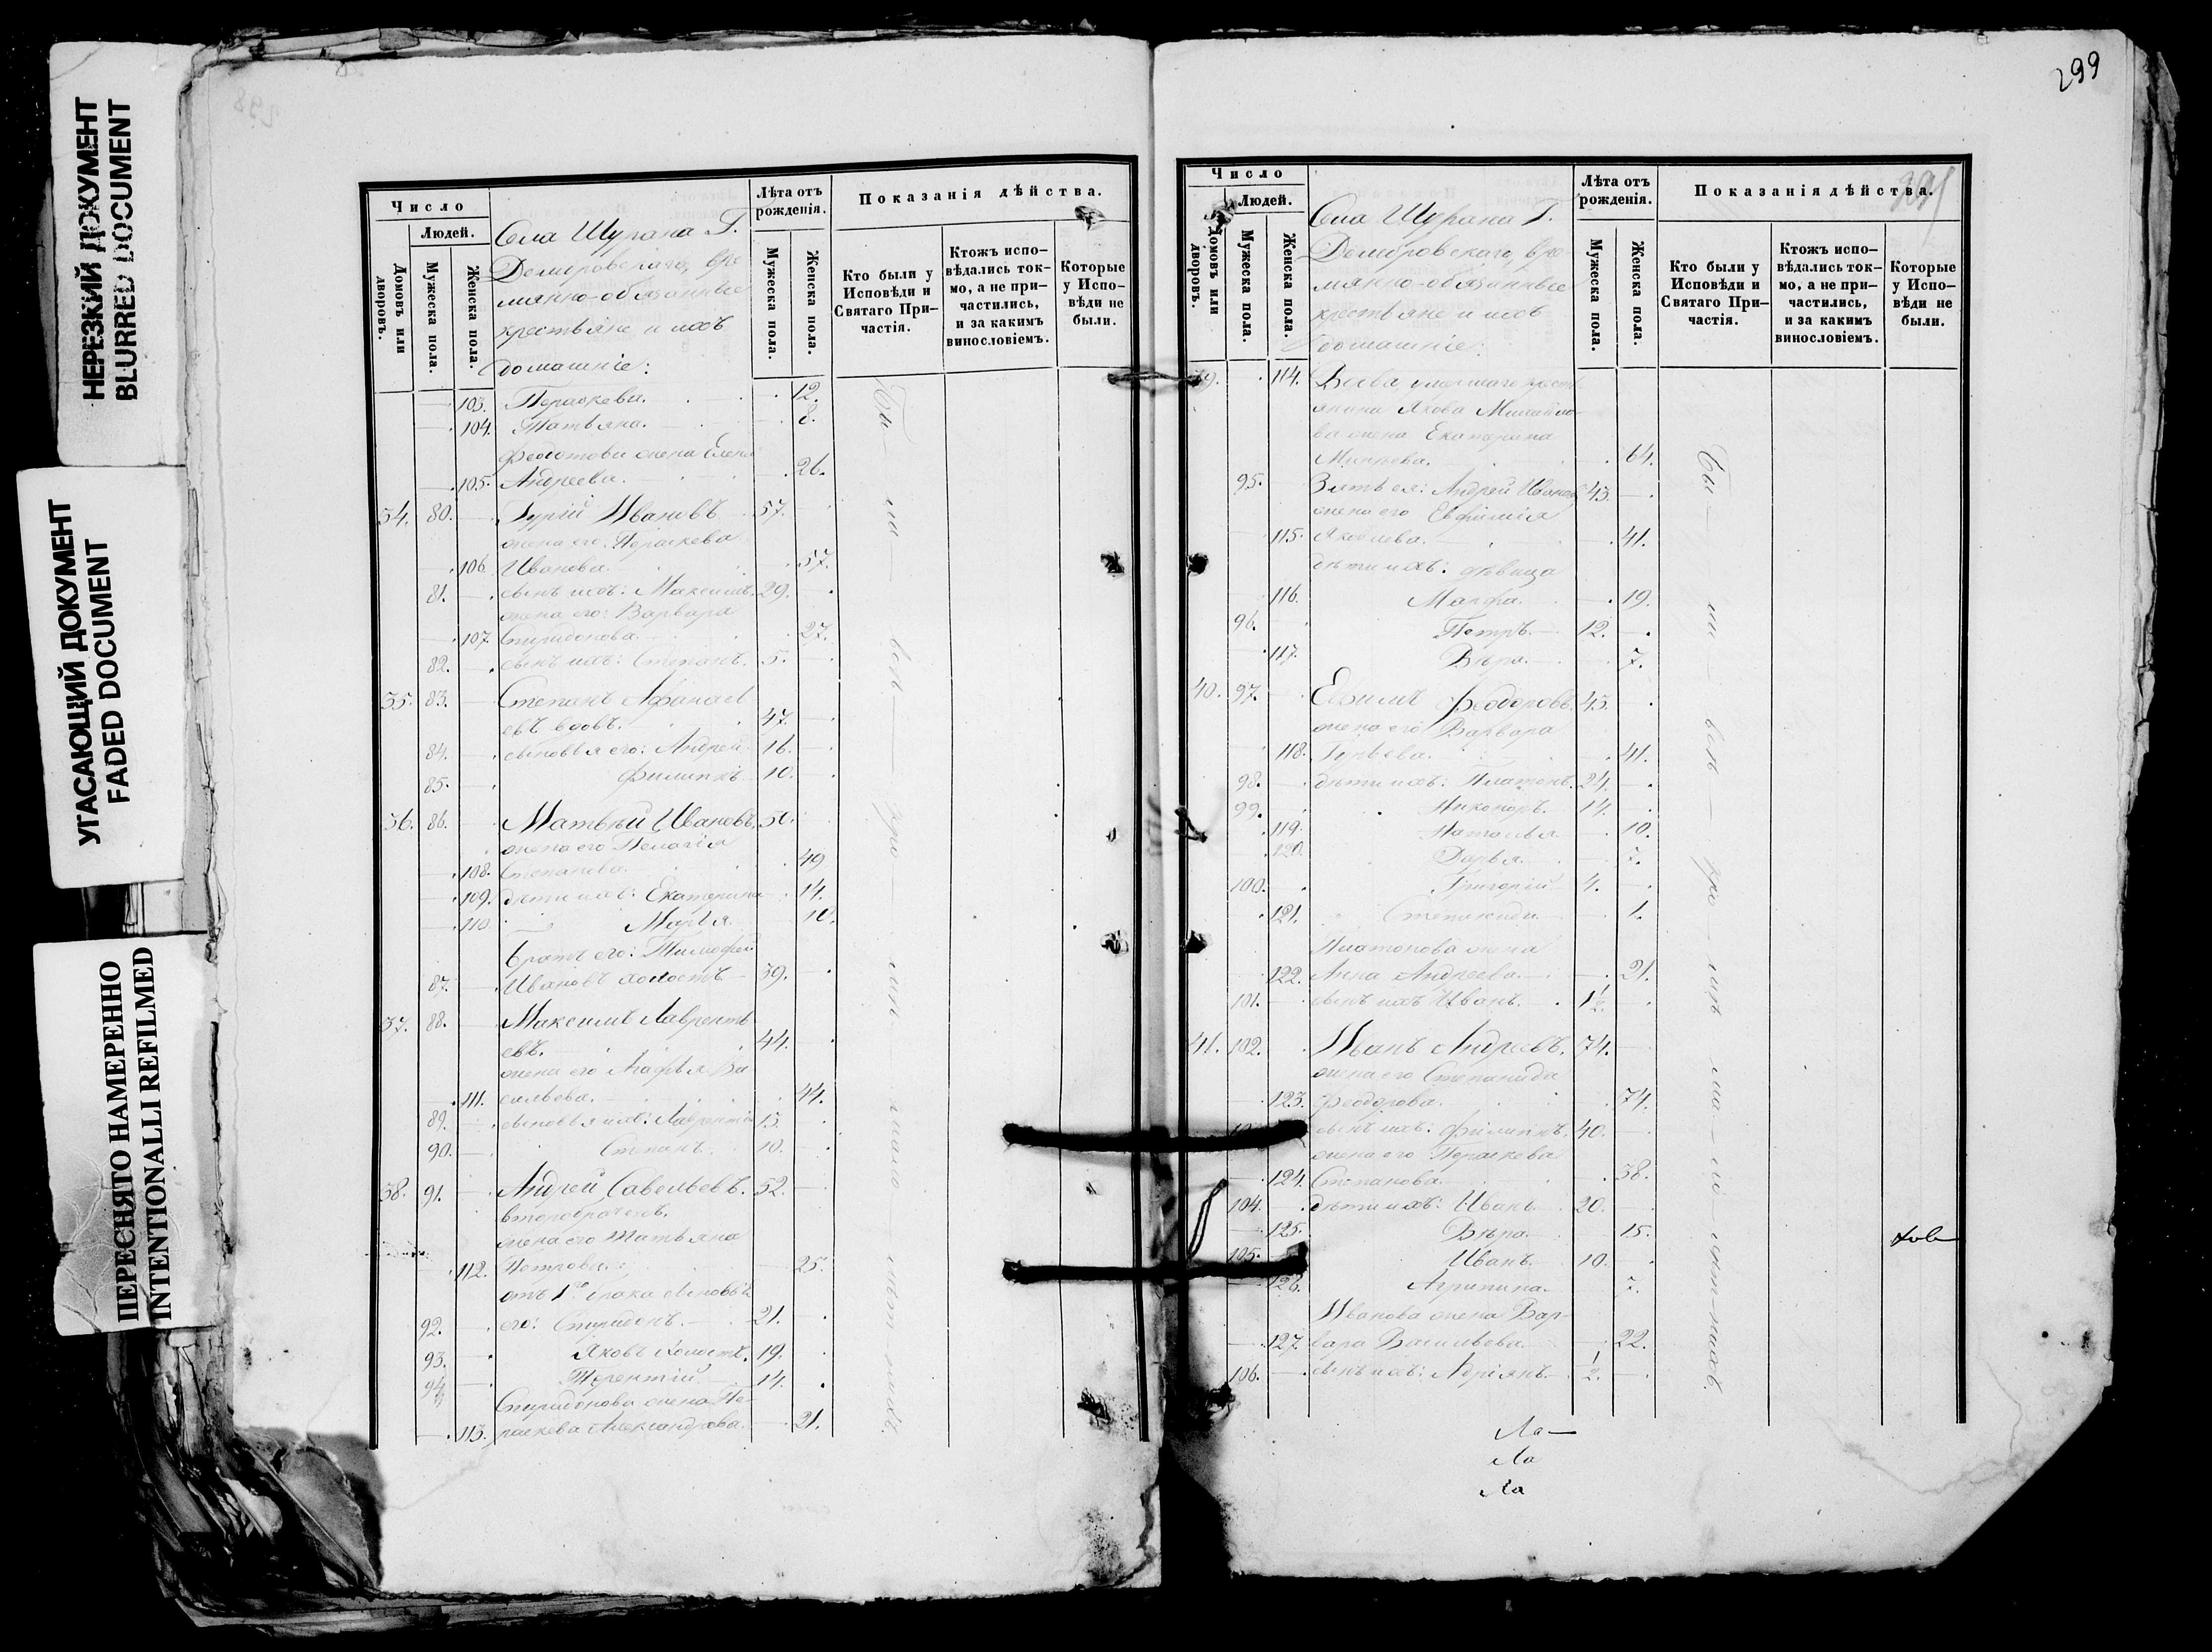 НЕРЕЗКИЙ ДОКУМЕНТ
BLURRED DOCUMENT
УГАСАЮЩИЙ ДОКУМЕНТ
FADED DOCUMENT
ПЕРЕСНЯТО НАМЕРЕННО
INTENTIONALLI REFILMED
Число
Людей.
Домовъ или дворовъ.
Мужеска пола.
Женска пола.
Села Шурана Г.
Демидовскаго, вре
мянно-обязанные
крестьяне и ихъ
домашніе:
Лѣта отъ рожденія.
Мужеска пола.
Женска пола.
Показанія дѣйства.
Кто были у Исповѣди и Святаго При-
частія.
Ктожъ испо-
вѣдались ток-
мо, а не при-
частились,
и за какимъ
винословіемъ.
Которые
у Испо-
вѣди не
были.
103. Параскева. 12.
104. Татьяна. 8.
Федотова жена Елена
105. Андреева. 26.
34. 80. Гурій Ивановъ 57.
жена его: Параскева
106. Иванова. 57.
81. сынъ ихъ: Максимъ. 29.
жена его: Варвара
107. Спиридонова. 27.
82. сынъ ихъ: Степанъ. 5.
35. 83. Степанъ Афанась
евъ вдовъ. 47.
84. сыновья его: Андрей 16.
85. Филиппъ 10.
36. 86. Матвѣй Ивановъ. 50.
жена его Пелагія
108. Степанова. 49
109. дѣти ихъ: Екатерина 14.
110 Марья. 10.
братъ его: Тимофей
87. Ивановъ холостъ 39.
37. 88. Максимъ Лавренть
евъ. 44.
жена его Агафья Ва
111. сильева. 44.
89. сыновья ихъ: Лаврентій 13.
90. Степанъ. 10.
38. 91. Андрей Савельевъ. 52.
второбрачный.
жена его Татьяна
112. Петрова: 25.
отъ 1го брака сыновья
92. его: Спиридонъ. 21.
93. Яковъ холостъ. 19.
94. Терентій. 14.
Спиридонова жена Па-
113. раскева Александрова. 21.
299
Число
Людей.
Домовъ или дворовъ.
Мужеска пола.
Женска пола.
Села Шурана Г.
Демидовскаго, вре
мянно-обязанные
крестьяне и ихъ
домашніе:
Лѣта отъ рожденія.
Мужеска пола.
Женска пола.
Показанія дѣйства.
Кто были у Исповѣди и Святаго При-
частія.
Ктожъ испо-
вѣдались ток-
мо, а не при-
частились,
и за какимъ
винословіемъ.
Которые
у Испо-
вѣди не
были.
39. 114. Вдова умершаго крест
янина Якова Михайло
ва жена Екатерина
64.
95. Зять ея: Андрей Ивановъ 43.
жена его Евфимія
115. Яковлева. 41.
дѣти ихъ: дѣвица
116. Марфа. 19.
96. Петръ. 12.
117. Вѣра. 7.
40. 97. Ефимъ Феодоровъ. 45.
жена его Варвара
118. Гурьева. 41.
98. дѣти ихъ: Платонъ. 24.
99. Никоноръ. 14.
119. Наталья 10.
120. Дарья. 7.
100. Григорій 4.
121. Степанида 1.
Платонова жена
122. Анна Андреева. 21.
101. сынъ ихъ Иванъ. 1½
41. 102. Иванъ Андреевъ. 74.
жена его Степанида
123. Феодорова. 74.
сынъ ихъ: Филиппъ. 40.
жена его Параскева
124. Степанова. 38.
104. дѣти ихъ: Иванъ 20.
125. Вѣра. 15.
105. Иванъ. 10.
126. Агрипина. 7.
Иванова жена Вар-
127. вара Васильева 22.
106. сынъ ихъ: Адріянъ. ½.
Ла—
Ла
Ла